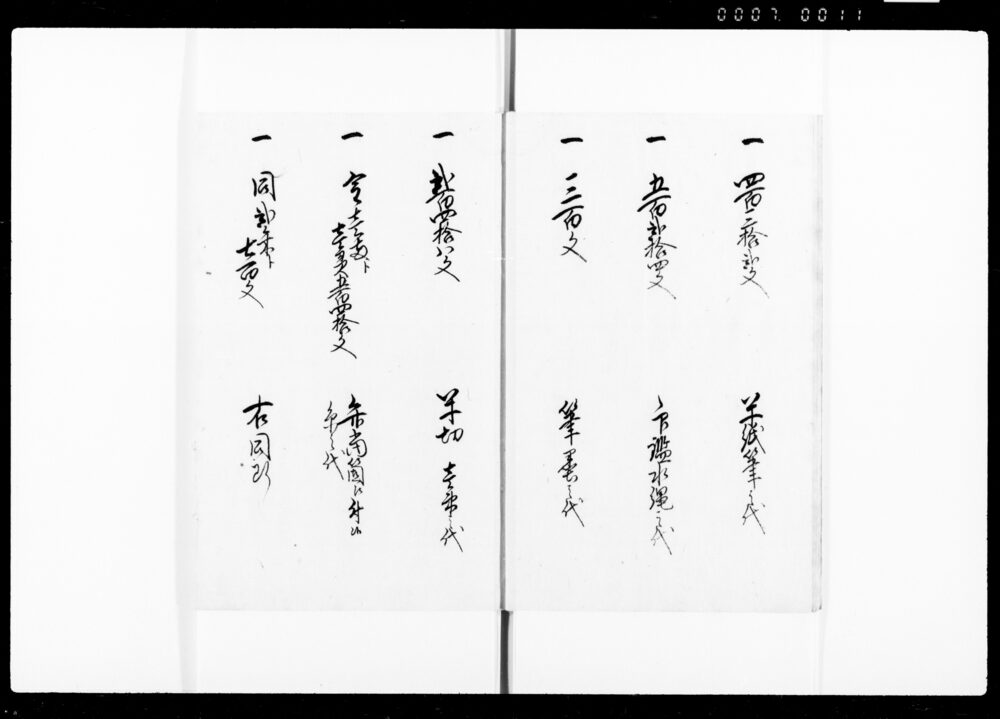 0007 0011
一 四百三拾弐文
半紙筆之代
一 五百弐拾四文
水縄之代
一 三百文
筆墨之代
一 弐百四拾八文
半切 壱束之代
一 金壱両ト
壱貫五百四拾文
之代
一 同弐朱ト
七百文
右同断